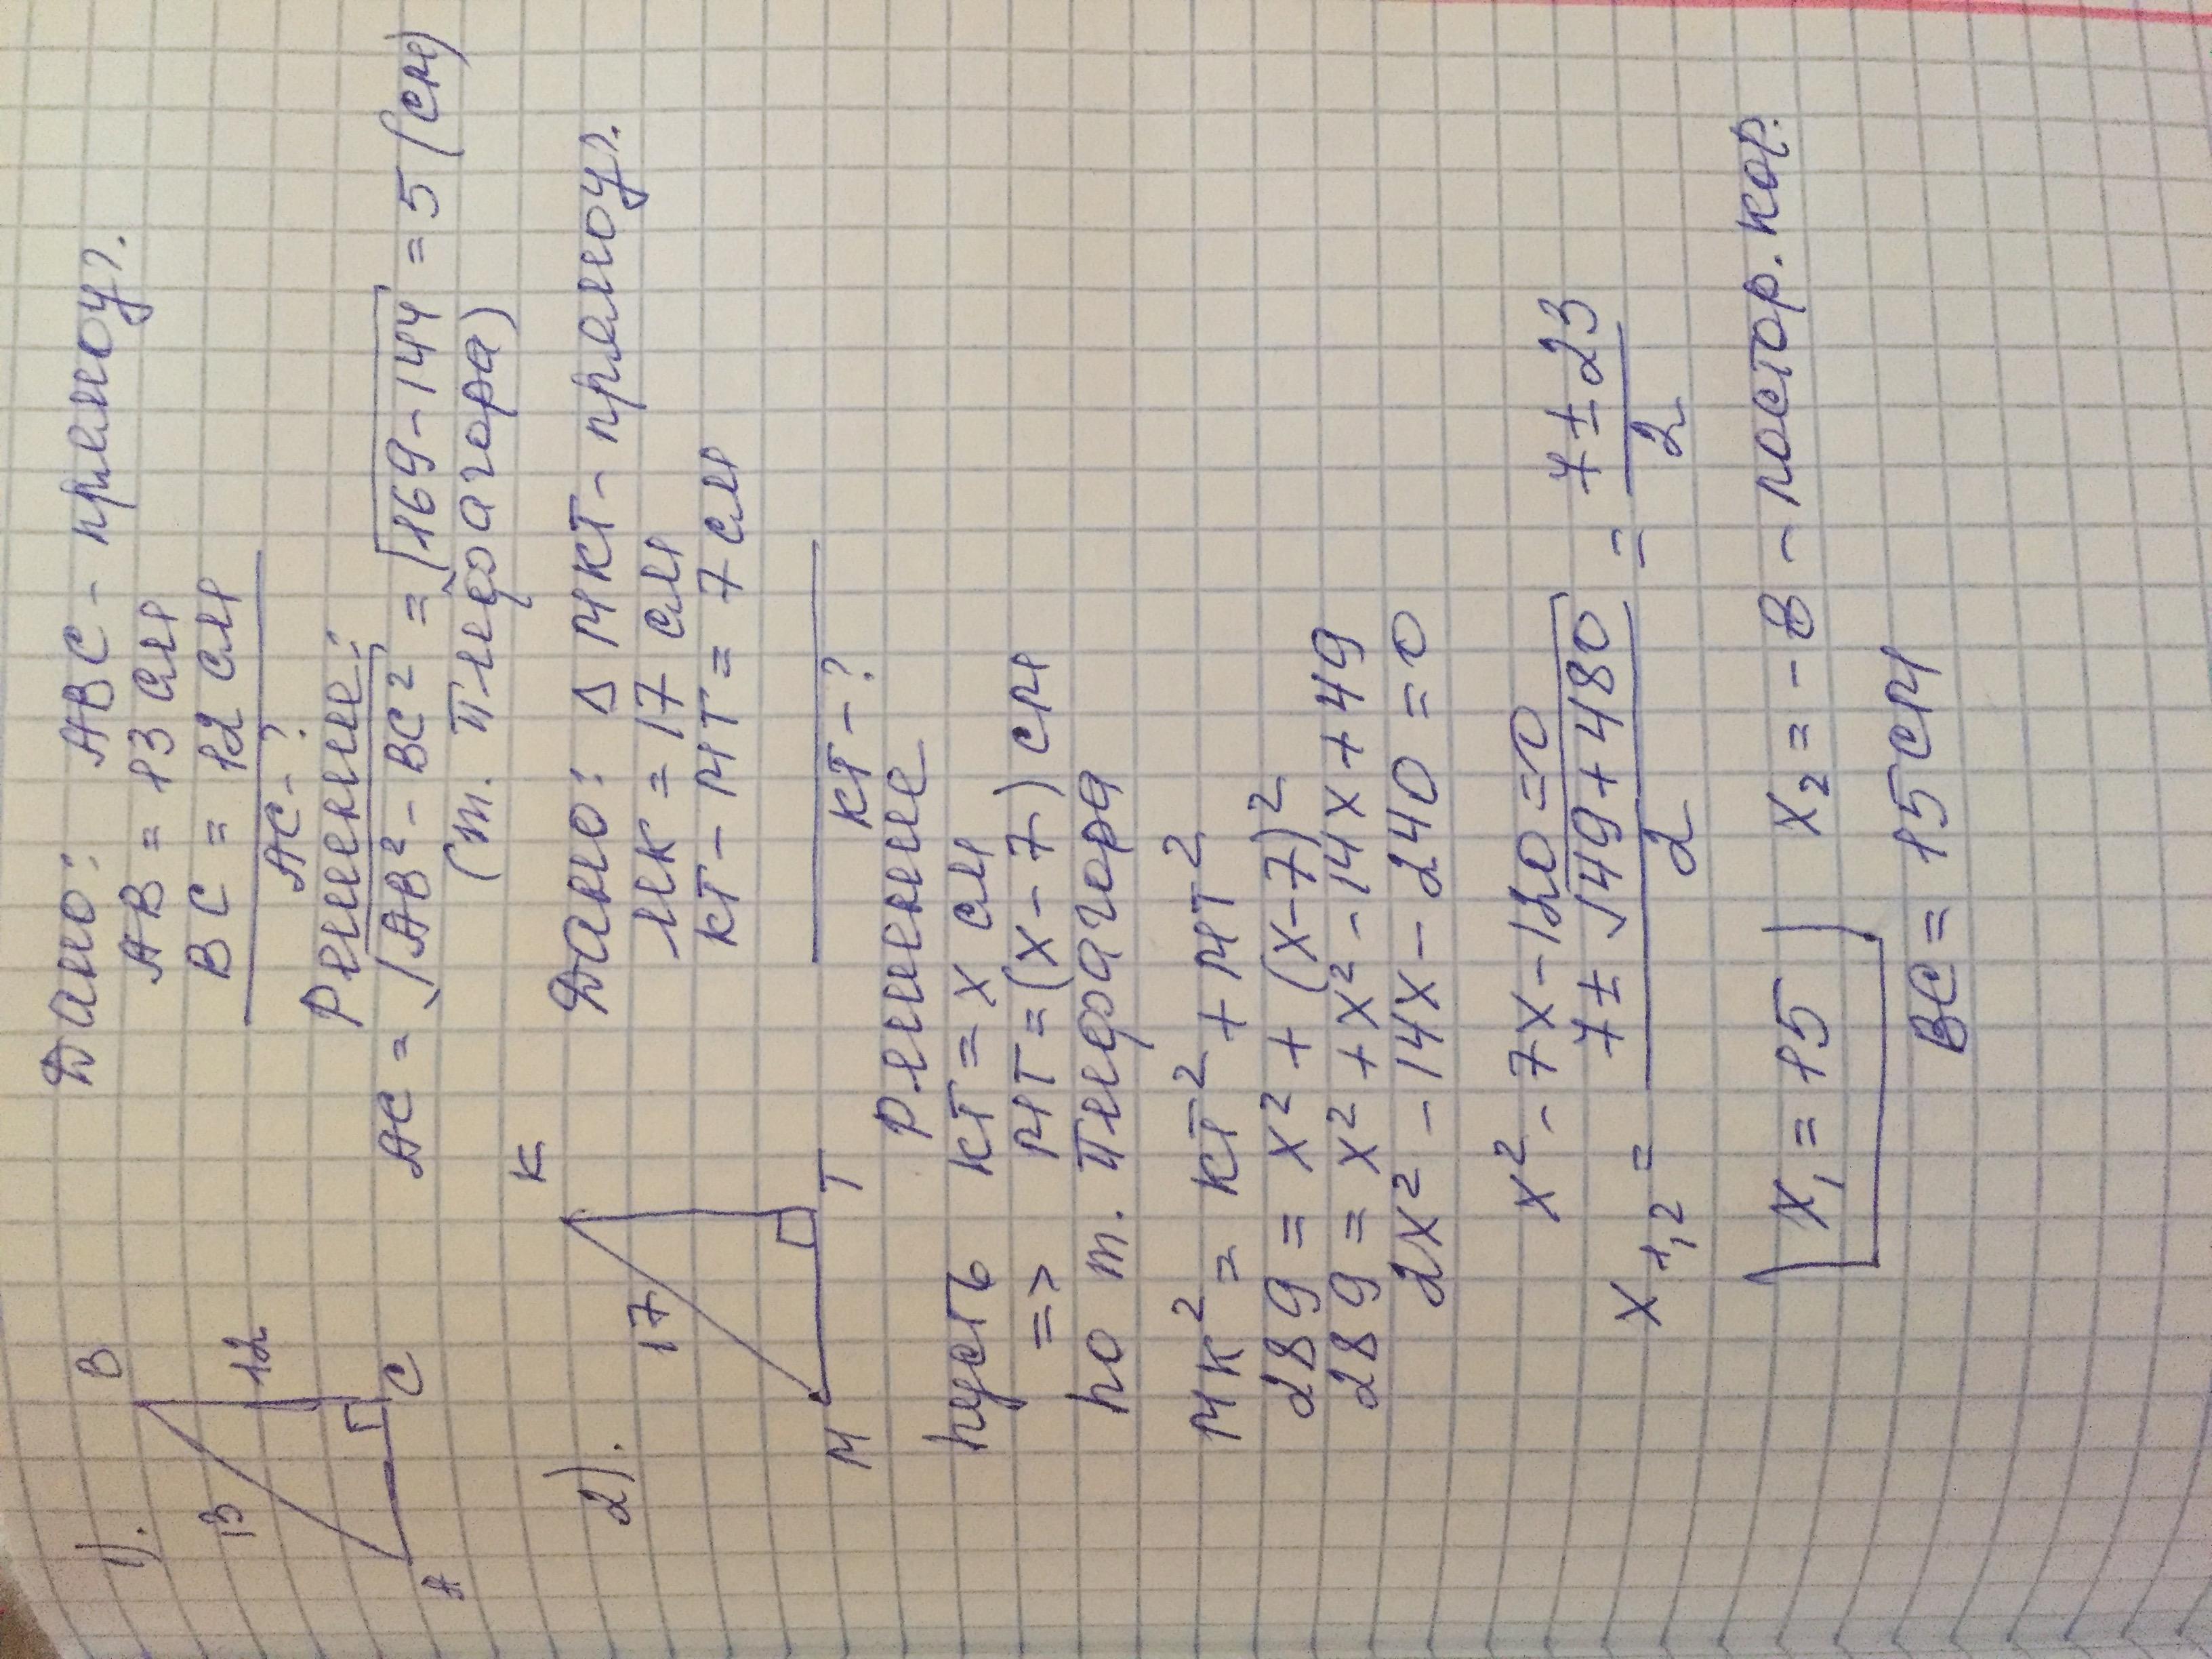 1). Дано: ABC - прямоуг.
AB = 13 см
BC = 12 см
AC - ?
B
13
12
A
C
Решение:
AC = √AB² - BC² = √169 - 144 = 5 (см)
(т. Пифагора)
2). Дано: Δ МКТ - прямоуг.
МК = 17 см
КТ - МТ = 7 см
КТ - ?
К
17
М
Т
Решение
пусть КТ = x см
=> МТ = (x - 7) см
по т. Пифагора
МК² = КТ² + МТ²
289 = x² + (x - 7)²
289 = x² + x² - 14x + 49
2x² - 14x - 240 = 0
x² - 7x - 120 = 0
x₁,₂ = 7 ± √49 + 480 / 2 = 7 ± 23 / 2
x₁ = 15 x₂ = - 8 - постор. кор.
ВС = 15 см